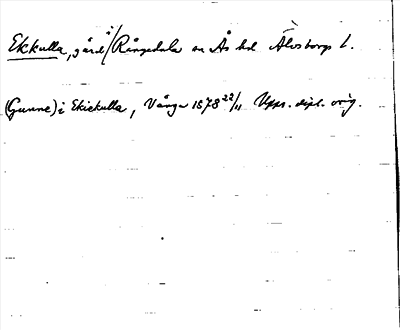 Ekkulla, gård i Rångedala sn Ås hd Älvsborgs l.
(Gunne) i Ekickulla, Vånga 1578 22/11 Upps. dipl. orig.